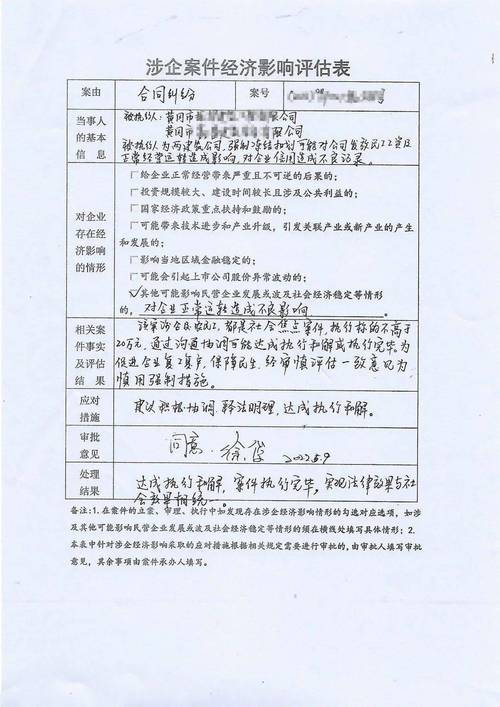 涉企案件经济影响评估表
案由 合同纠纷 案号
当事人的基本信息
被执行人:黄冈市 公司
黄冈市 有限公司
被执行人为两建筑公司,强制冻结扣划可能对公司发放民工工资及
正常经营运转造成影响,对企业信用造成不良记录。
对企业存在经济影响的情形
□给企业正常经营带来严重且不可逆的后果的;
□投资规模较大、建设时间较长且涉及公共利益的;
□国家经济政策重点扶持和鼓励的;
□可能带来技术进步和产业升级,引发关联产业或新产业的产生
和发展的;
□影响当地区域金融稳定的;
□可能会引起上市公司股价异常波动的;
☑其他可能影响民营企业发展或波及社会经济稳定等情形
的,对企业正常运转造成不良影响。
相关案件事实及评估结果
该案涉企及农民工,都是社会焦点案件,执行标的不高于
20万元,通过沟通协调可能达成执行和解或执行完毕。为
促进企业复工复产,保障民生,经审慎评估一致意见为
慎用强制措施。
应对措施
建议积极协调,释法明理,达成执行和解。
审批意见
同意 2022.5.9
处理结果
达成执行和解,案件执行完毕,实现法律效果与社
会效果相统一。
备注:1.在案件的立案、审理、执行中如发现存在涉企经济影响情形的勾选对应选项,如涉
及其他可能影响民营企业发展或波及社会经济稳定等情形的须在横线处填写具体情形;2.
本表中针对涉企经济影响采取的应对措施根据相关规定需要进行审批的,由审批人填写审批
意见,其余事项由案件承办人填写。